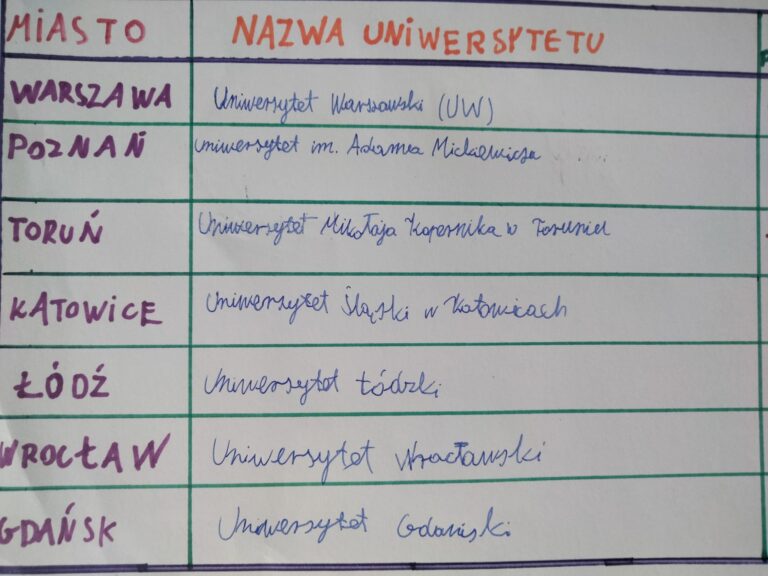 MIASTO NAZWA UNIWERSYTETU
WARSZAWA Uniwersytet Warszawski (UW)
POZNAŃ uniwersytet im. Adama Mickiewicza
TORUŃ Uniwersytet Mikołaja Kopernika w Toruniu
KATOWICE Uniwersytet Śląski w Katowicach
ŁÓDŹ Uniwersytet Łódzki
WROCŁAW Uniwersytet Wrocławski
GDAŃSK Uniwersytet Gdański